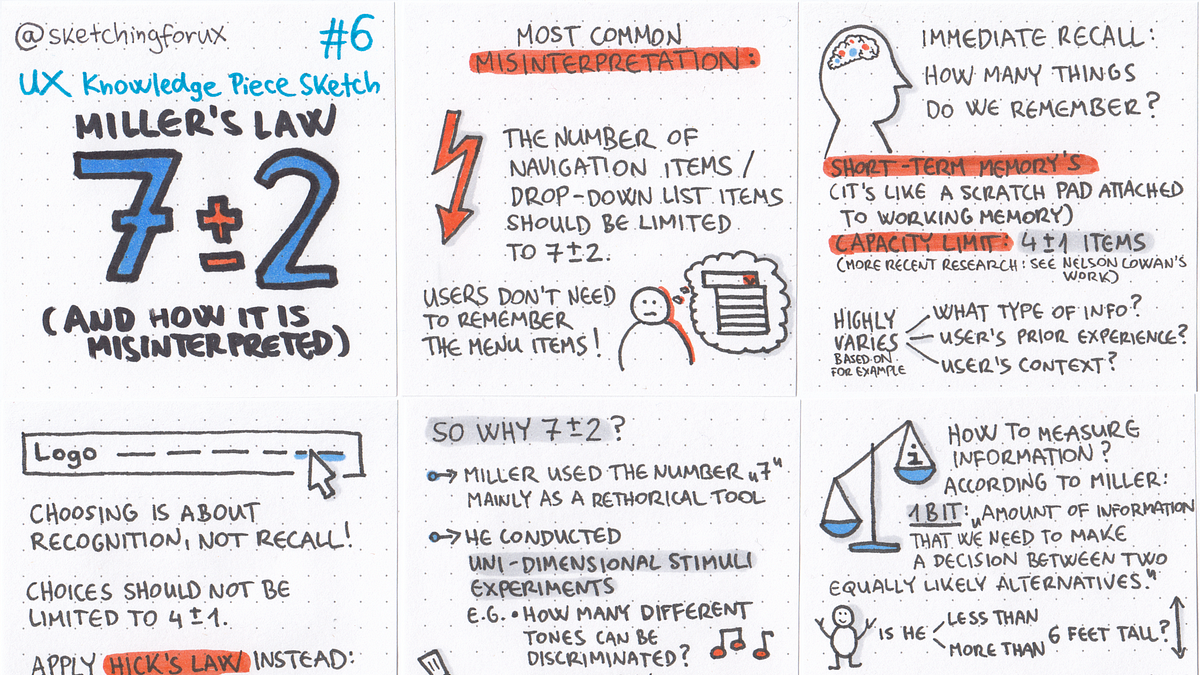 @sketchingforux
#6
UX Knowledge Piece Sketch
MILLER'S LAW
7±2
(AND HOW IT IS
MISINTERPRETED)
MOST COMMON
MISINTERPRETATION:
THE NUMBER OF
NAVIGATION ITEMS /
DROP-DOWN LIST ITEMS
SHOULD BE LIMITED
TO 7±2.
USERS DON'T NEED
TO REMEMBER
THE MENU ITEMS!
IMMEDIATE RECALL:
HOW MANY THINGS
DO WE REMEMBER?
SHORT-TERM MEMORY'S
(IT'S LIKE A SCRATCH PAD ATTACHED
TO WORKING MEMORY)
CAPACITY LIMIT: 4±1 ITEMS
(MORE RECENT RESEARCH: SEE NELSON COWAN'S
WORK)
HIGHLY
VARIES
BASED ON
FOR EXAMPLE
WHAT TYPE OF INFO?
USER'S PRIOR EXPERIENCE?
USER'S CONTEXT?
Logo
CHOOSING IS ABOUT
RECOGNITION, NOT RECALL!
CHOICES SHOULD NOT BE
LIMITED TO 4±1.
APPLY HICK'S LAW INSTEAD:
SO WHY 7±2?
MILLER USED THE NUMBER „7"
MAINLY AS A RETHORICAL TOOL
HE CONDUCTED
UNI-DIMENSIONAL STIMULI
EXPERIMENTS
E.G. • HOW MANY DIFFERENT
TONES CAN BE
DISCRIMINATED?
HOW TO MEASURE
INFORMATION?
ACCORDING TO MILLER:
i
1 BIT: „AMOUNT OF INFORMATION
THAT WE NEED TO MAKE
A DECISION BETWEEN TWO
EQUALLY LIKELY ALTERNATIVES."
IS HE
LESS THAN
MORE THAN
6 FEET TALL?